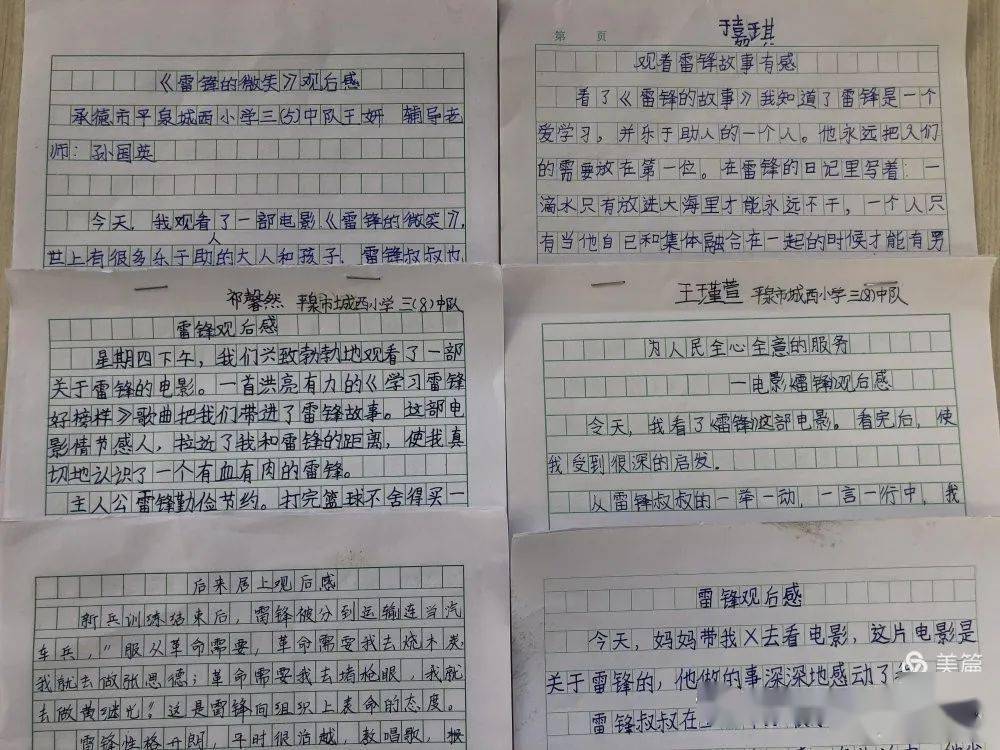 《雷锋的微笑》观后感
承德市平泉城西小学三(5)中队王妍 辅导老
师：孙国英
今天，我观看了一部电影《雷锋的微笑》，
人
世上有很多乐于助的大人和孩子，雷锋叔叔也
于嘉琪
第 页
观看雷锋故事有感
看了《雷锋的故事》我知道了雷锋是一个
爱学习，并乐于助人的一个人。他永远把人们
的需要放在第一位。在雷锋的日记里写着：一
滴水只有放进大海里才能永远不干，一个人只
有当他自己和集体融合在一起的时候才能有男
祁馨然 平泉市城西小学 三(8)中队
雷锋观后感
星期四下午，我们兴致勃勃地观看了一部
关于雷锋的电影。一首洪亮有力的《学习雷锋
好榜样》歌曲把我们带进了雷锋故事。这部电
影情节感人，拉近了我和雷锋的距离，使我真
切地认识了一个有血有肉的雷锋。
主人公雷锋勤俭节约。打完篮球不舍得买一
王瑾萱 平泉市城西小学 三(8)中队
为人民全心全意的服务
—电影《雷锋》观后感
今天，我看了《雷锋》这部电影。看完后，使
我受到很深的启发。
从雷锋叔叔的一举一动，一言一行中，我
后来居上观后感
新兵训练结束后，雷锋被分到运输连当汽
车兵，"服从革命需要，革命需要我去烧木炭
我就去做张思德；革命需要我去堵枪眼，我就
去做黄继光"这是雷锋向组织上表命的态度。
雷锋性格开朗，平时很活越，教唱歌，
雷锋观后感
今天，妈妈带我X去看电影，这片电影是
关于雷锋的，他做的事深深地感动了
雷锋叔叔在
美篇